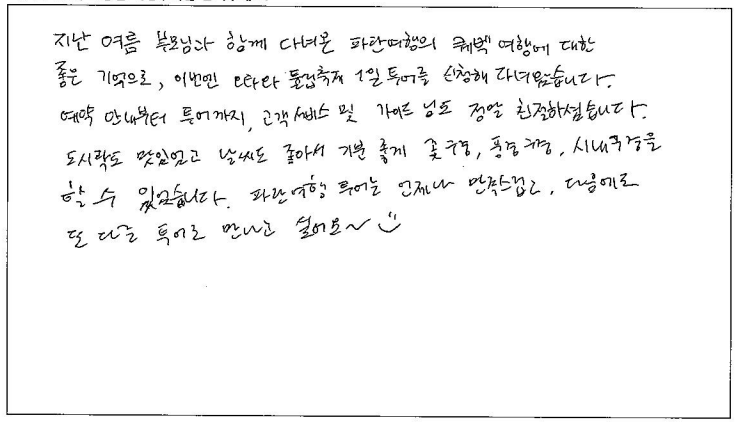 지난 여름 부모님과 함께 다녀온 파란여행의 퀘벡 여행에 대한
좋은 기억으로, 이번엔 오타와 튤립축제 1일 투어를 신청해 다녀왔습니다.
예약 안내부터 투어까지, 고객서비스 및 가이드 님도 정말 친절하셨습니다.
도시락도 맛있었고 날씨도 좋아서 기분 좋게 꽃구경, 풍경구경, 시내구경을
할 수 있었습니다. 파란여행 투어는 언제나 만족스럽고, 다음에도
또 다른 투어로 만나고 싶어요~